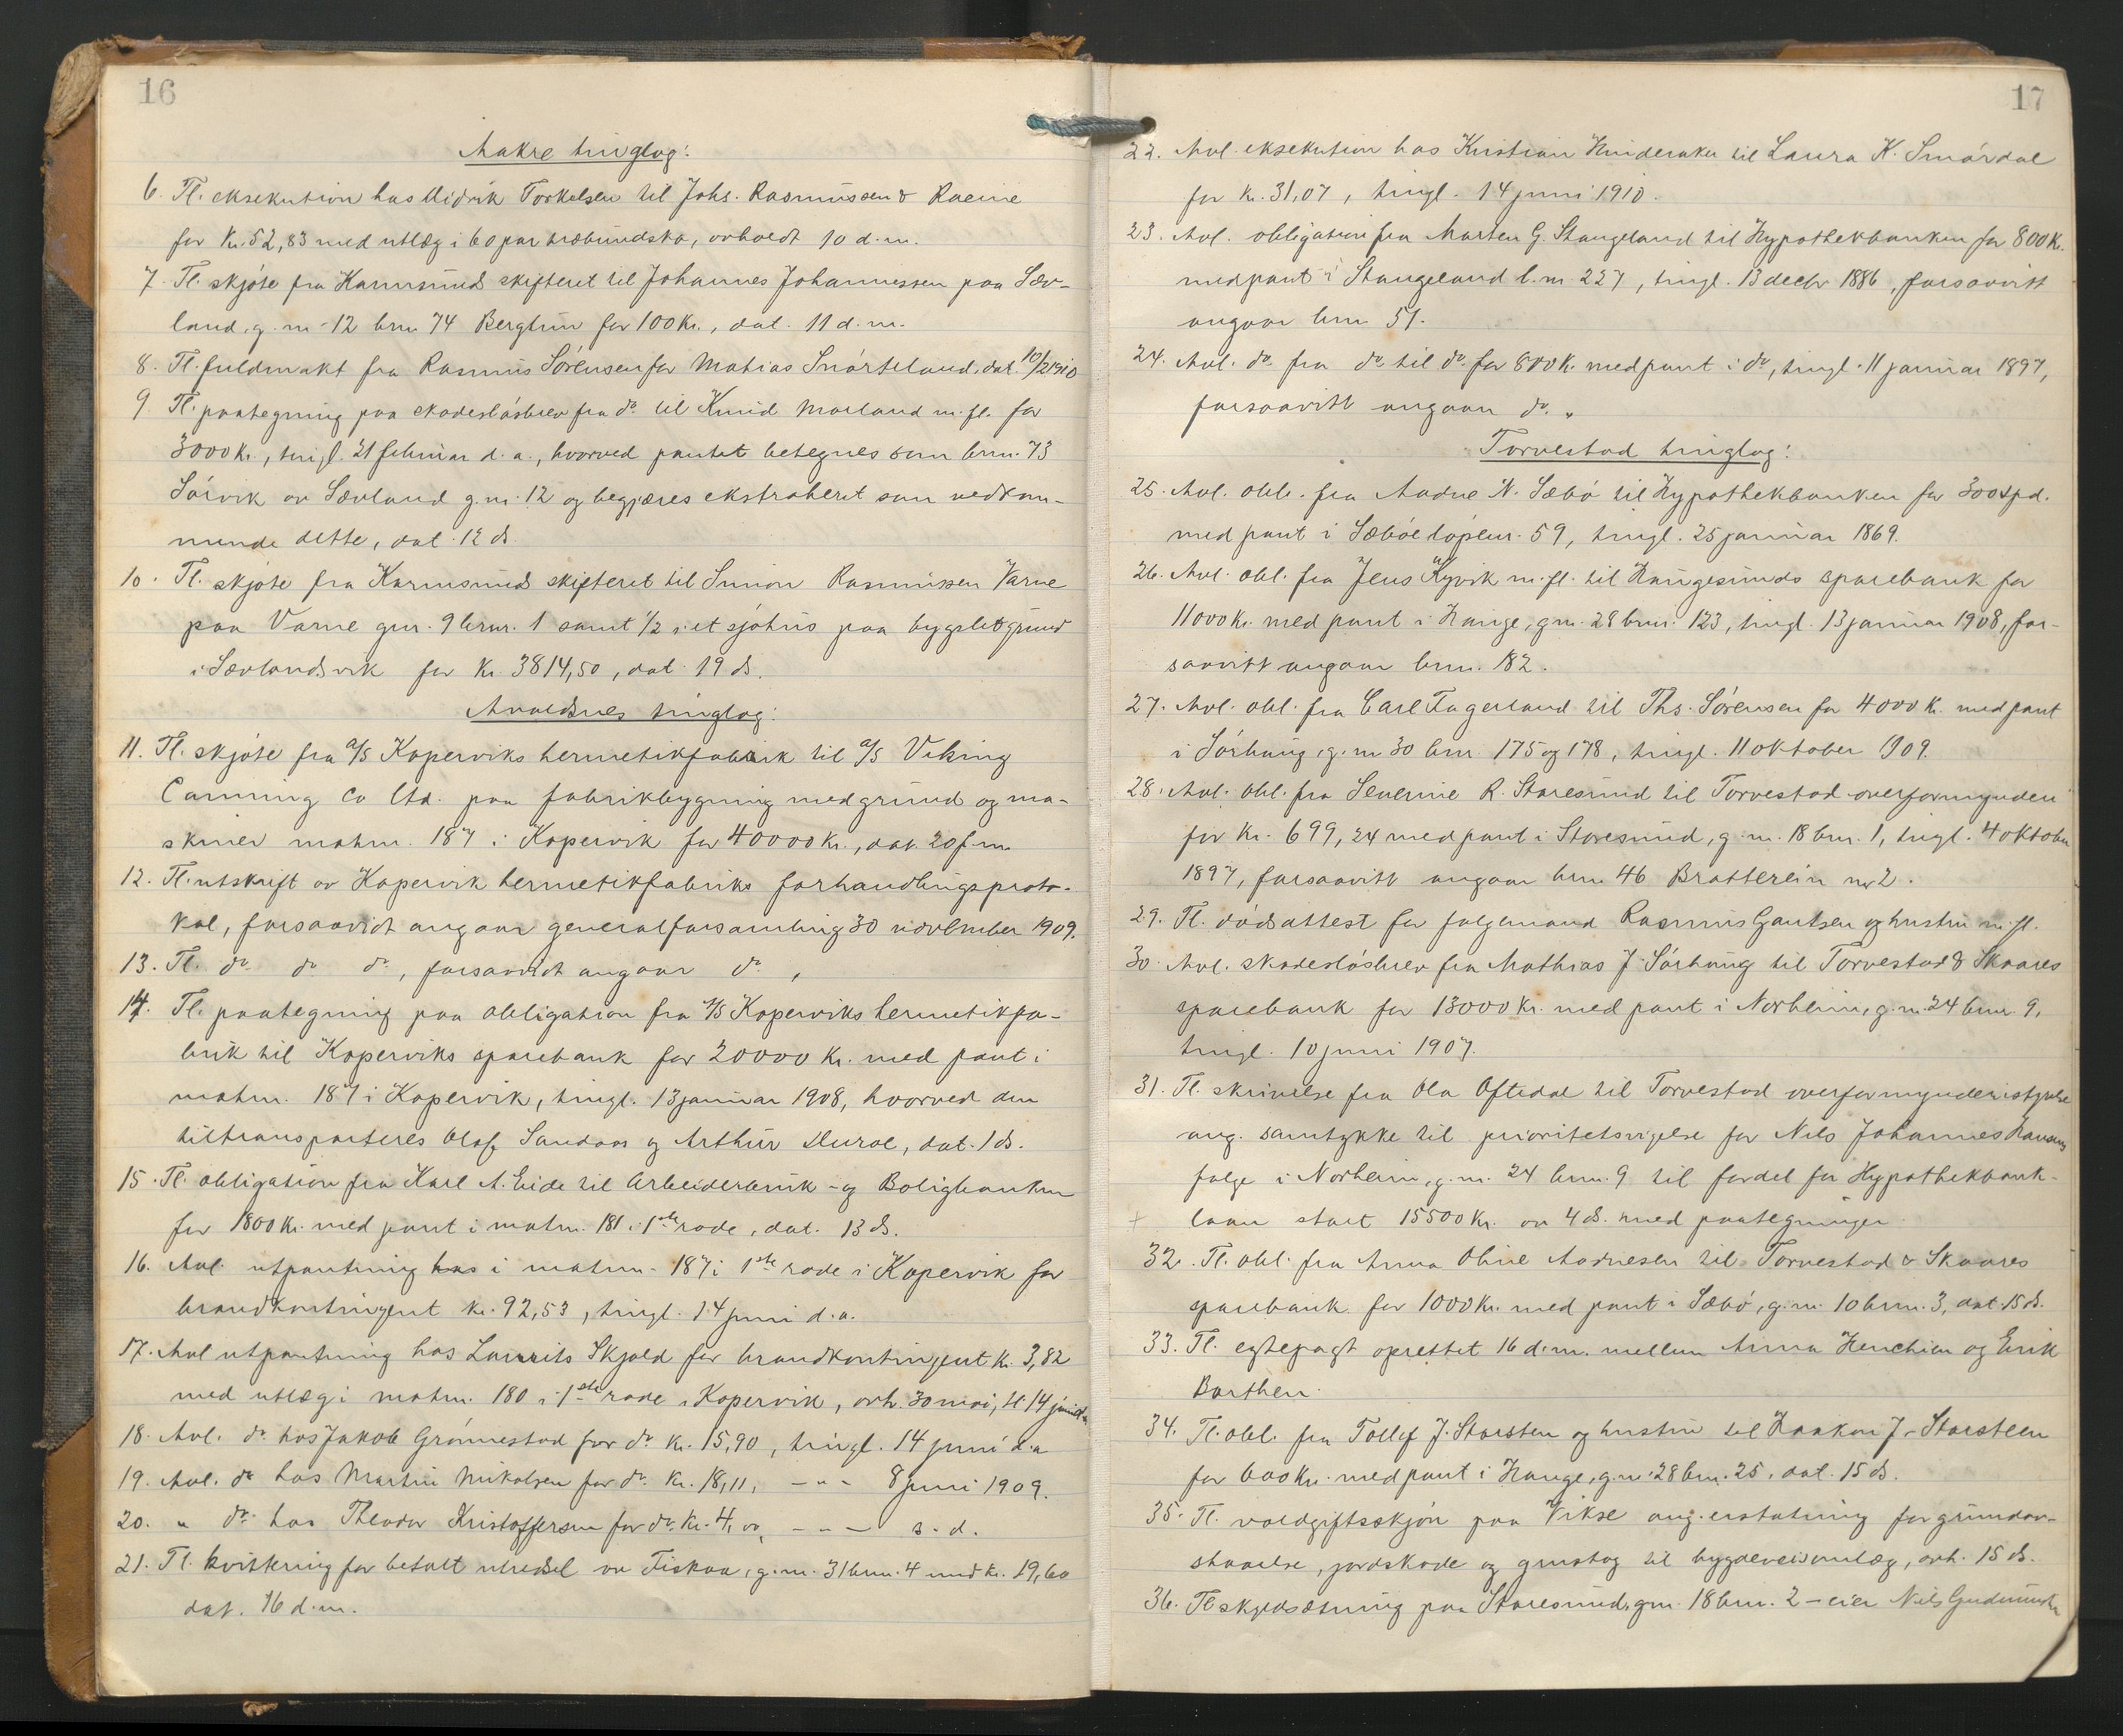 16
Aakre tinglag:
6. Tl. eksekution hos Didrik Torkelsen til Johs. Rasmussen & Racine
for Kr. 52,83 med utlæg i 60 par træbundsko, avholdt 10 d.m.
7. Tl. skjøte fra Karmsund skifteret til Johannes Johannessen paa Sæv-
land, g.nr. 12 brnr. 74 Bergtun for 100 Kr., dat. 11 d.m.
8. Tl. fuldmakt fra Rasmus Sørensen for Mathias Snørteland, dat. 10/2 1910
9. Tl. paategning paa skadesløsbrev fra do. til Knud Marland m.fl. for
3000 Kr., tingl. 21 februar d.a., hvorved pantet betegnes som brnr. 73
Sørvik av Sævland g.nr. 12 og begjæres ekstraheret som vedkom-
mende dette, dat. 12 ds.
10. Tl. skjøte fra Karmsund skifteret til Simon Rasmussen Varne
paa Varne gnr. 9 brnr. 1 samt 1/2 i et sjøhus paa bygslet grund
i Sævlandsvik for Kr 3814,50, dat. 19 ds.
Avaldsnes tinglag:
11. Tl. skjøte fra A/S Koperviks hermetikfabrik til A/S Viking
Canning Co Ltd. paa fabrikbygning med grund og ma-
skiner matnr. 187 i Kopervik for 40000 Kr., dat. 20 f.m.
12. Tl. utskrift av Kopervik hermetikfabriks forhandlingsproto-
kol, forsaavidt angaar generalforsamling 30 november 1909.
13. Tl. do do do, forsaavidt angaar do.,
14. Tl. paategning paa obligation fra A/S Koperviks hermetikfa-
brik til Koperviks sparebank for 20000 Kr. med pant i
matnr. 187 i Kopervik, tingl. 13 januar 1908, hvorved den
tiltransporteres Olaf Sandaas og Arthur, dat. 1 ds.
15. Tl. obligation fra Karl A. Eide til Arbeiderbruk- og Boligbanken
for 1800 Kr. med pant i matnr. 181 i 1ste rode, dat. 13 ds.
16. Avl. utpantning hos i matnr. 187 i 1ste rode i Kopervik for
brandkontingent kr. 92,53, tingl. 14 juni d.a.
17. Avl utpantning hos Laurits Skjold for brandkontingent Kr. 3,82
med utlæg i matnr. 180 i 1ste rode i Kopervik, avh. 30 mai, tl. 14 juni d.a.
18. Avl. do hos Jakob Grønnestad for do. Kr. 15,90, tingl. 14 juni d.a
19. Avl. do hos Martin Mikalsen for do. Kr. 18,11, - " - 8 juni 1909.
20. " do. hos Theodor Kristoffersen for do. Kr. 4,00, - " - s.d.
21. Tl. kvittering for betalt utredsel av Fiskaa, g.nr. 31 brnr. 4 med kr. 19,60
dat. 16 d.m.
17
22. Avl. eksekution hos Kristian Hinderaker til Laura K. Smørdal
for Kr. 31,07, tingl. 14 juni 1910.
23. Avl. obligation fra Marten G. Stangeland til Hypothekbanken for 800 Kr.
med pant i Stangeland l.nr. 227, tingl. 13 decbr 1886, forsaavitt
angaar brnr 51.
24. Avl. do. fra do. til do. for 800 K. med pant i do, tingl. 11 januar 1897,
forsaavitt angaar do. "
Torvestad tinglag:
25. Avl. obl. fra Aadne N. Sæbø til Hypothekbanken for 300 spd.
med pant i Sæbøe løpenr. 59, tingl. 25 januar 1869.
26. Avl. obl. fra Jens Kyvik m.fl. til Haugesunds sparebank for
11000 Kr. med pant i Hauge, gnr. 28 brnr. 123, tingl. 13 januar 1908, for-
saavitt angaar brnr. 182.
27. Avl. obl. fra Carl Fagerland til Ths. Sørensen for 4000 Kr. med pant
i Sørhaug, g.nr 30 brnr. 175 og 178, tingl. 11 oktober 1909.
28. Avl. obl. fra Severine R. Storesund til Torvestad overformynderi
for Kr. 699,24 med pant i Storesund, g.nr. 18 brnr. 1, tingl. 4 oktober
1897, forsaavitt angaar brnr 46 Bratterein nr 2.
29. Tl. dødsattest for folgemand Rasmus Gautsen og hustru m.fl.
30. Avl. skadesløsbrev fra Mathias J. Sørhaug til Torvestad & Skaares
sparebank for 13000 Kr. med pant i Norheim, g.nr. 24 brnr. 9,
tingl. 10 juni 1907.
31. Tl. skrivelse fra Ola Oftedal til Torvestad overformynderistyrelse
ang. samtykke til prioritetsvigelse for Nils Johannes
folge i Norheim, g.nr. 24 brnr. 9 til fordel for Hypothekbank-
+ laan stort 15500 Kr. av 4 ds. med paategninger.
32. Tl. obl. fra Anna Oline Aadnesen til Torvestad & Skaares
sparebank for 1000 Kr. med pant i Sæbø, g.nr. 10 brnr. 3, dat. 15 ds.
33. Tl. egtepagt oprettet 16 d.m. mellem Anna Henchien og Erik
Barthen.
34. Tl. obl. fra Tollef J. Storsten og hustru til Haakon J. Storsteen
for 600 Kr. med pant i Hauge, g.nr. 28 brnr. 25, dat. 15 ds.
35. Tl. voldgiftsskjøn paa Vikse ang. erstatning for grundav-
staaelse, jordskade og grustag til bygdeveisomlæg, avh. 15 ds.
36. Tl skyldsætning paa Storesund, gnr. 18 brnr. 2 - eier Nils Gudmundsen